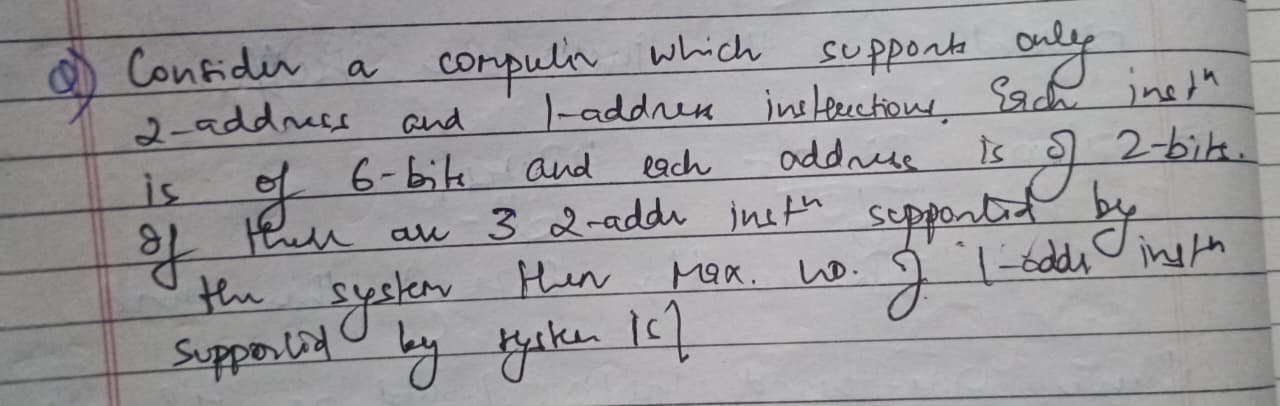 Q) Consider a computer which supports only
2-address and 1-address instructions. Each instn
is of 6-bits and each address is of 2-bits.
If there are 3 2-addr instn supported by
the system then Max. no. of 1-addr instn
supported by system is?